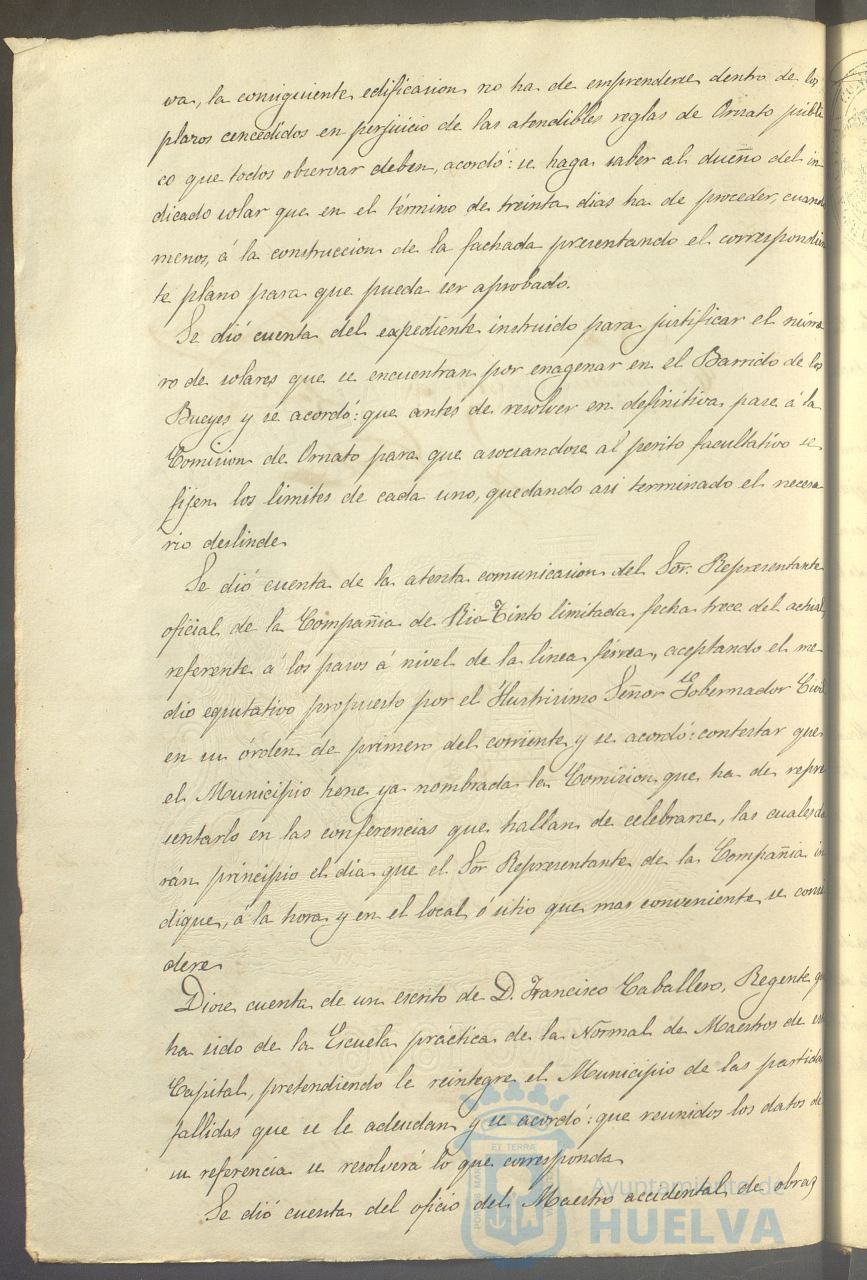 va, la consiguiente edificacion no ha de emprenderse dentro de los
plazos concedidos en perjuicio de las atendibles reglas de Ornato públi
co que todos observar deben, acordó: se haga saber al dueño del in
dicado solar que en el término de treinta dias ha de proceder, cuando
menos, á la construccion de la fachada presentando el correspondien
te plano para que pueda ser aprobado.
Se dió cuenta del expediente instruido para justificar el núme
ro de solares que se encuentran por enagenar en el Barrido de los
Bueyes y se acordó: que antes de resolver en definitiva pase á la
Comision de Ornato para que asociandose al perito facultativo se
fijen los limites de cada uno, quedando asi terminado el necesa
rio deslinde
Se dió cuenta de la atenta comunicacion del Sor. Representante
oficial de la Compañia de Rio-Tinto limitada fecha trece del actual,
referente á los pasos á nivel de la linea férrea, aceptando el me
dio equitativo propuesto por el Ilustrisimo Señor Gobernador Civil
en su órden de primero del corriente y se acordó: contestar que
el Municipio tiene ya nombrada la Comision que ha de repre
sentarlo en las conferencias que hallan de celebrarse, las cuales da
rán principio el dia que el Sor Representante de la Compañia in
dique, á la hora y en el local ó sitio que mas conveniente se consi
dere
Diose cuenta de un escrito de D. Francisco Caballero, Regente que
ha sido de la Escuela práctica de la Normal de Maestros de esta
Capital, pretendiendo le reintegre el Municipio de las partidas
fallidas que se le adeudan y se acordó: que reunidos los datos de
su referencia se resolverá lo que corresponda
Se dió cuenta del oficio del Maestro accidental de obras
ET TERRÆ
Ayuntamiento de
HUELVA